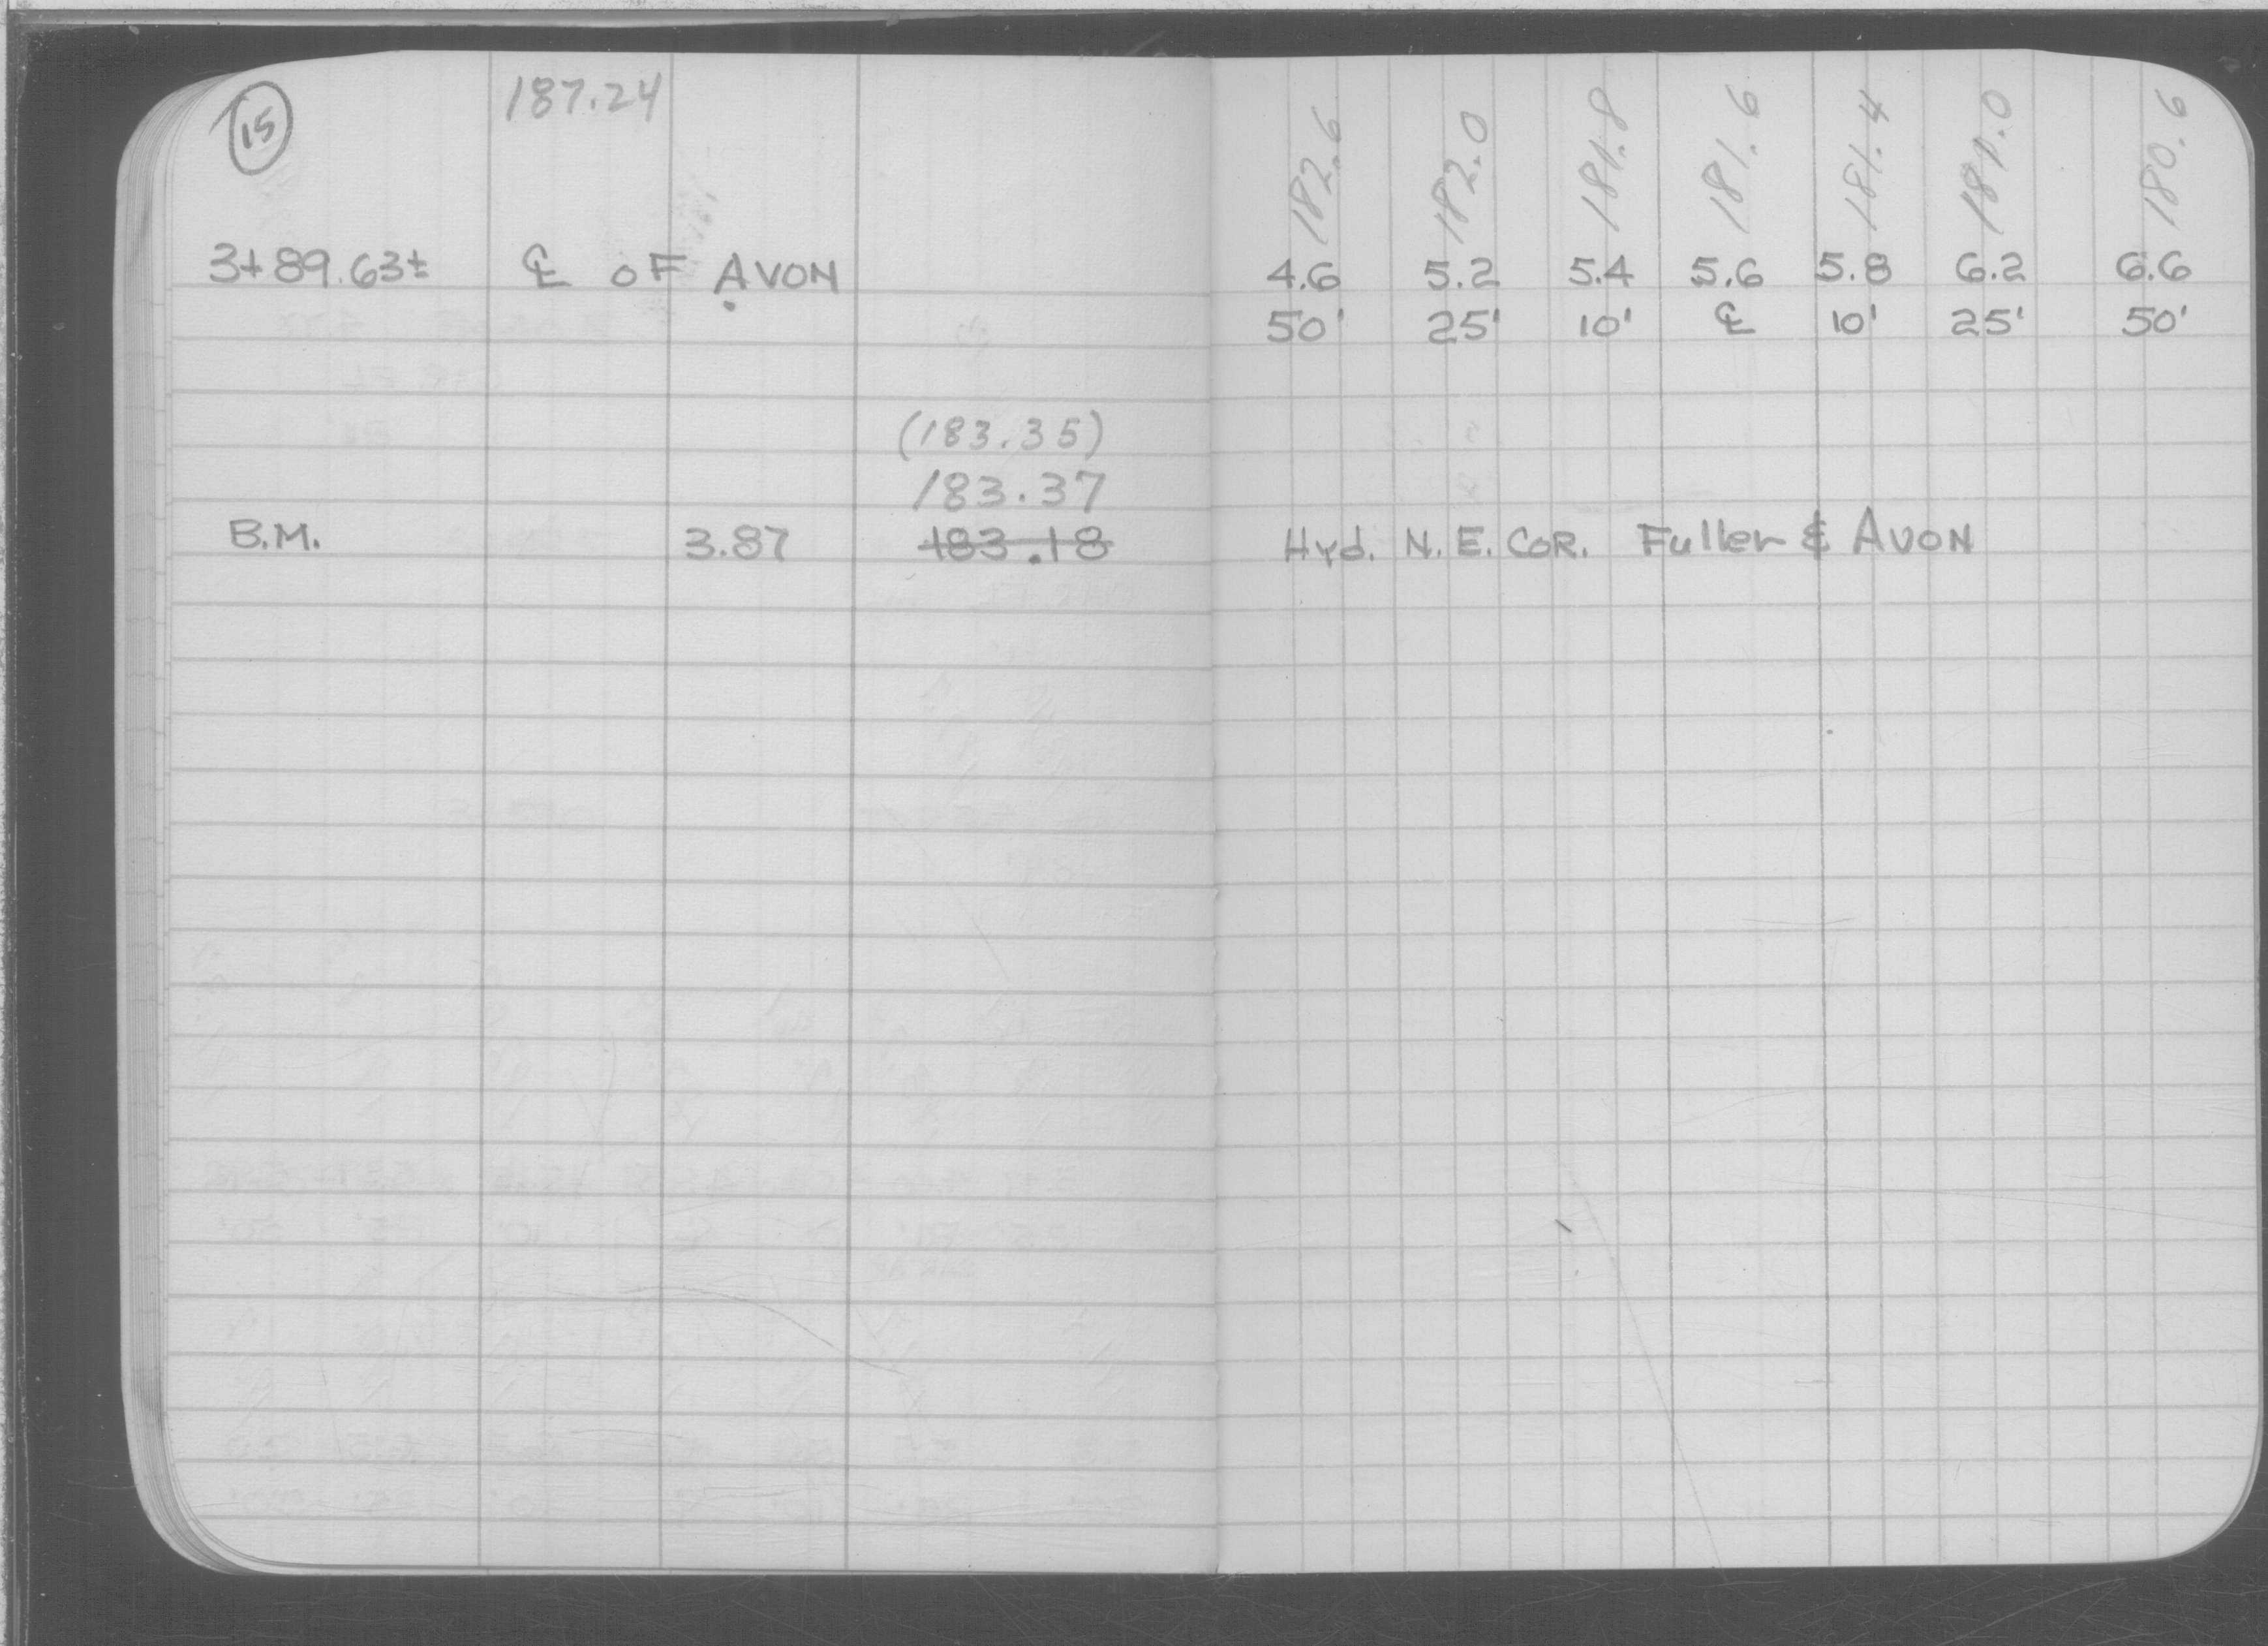 15 187.24
182.6 182.0 181.8 181.6 181.4 181.0 180.6
3+89.63± ℄ OF AVON 4.6 5.2 5.4 5.6 5.8 6.2 6.6
50' 25' 10' ℄ 10' 25' 50'
(183.35)
183.37
B.M. 3.87 183.18 Hyd. N.E. COR. Fuller & AVON